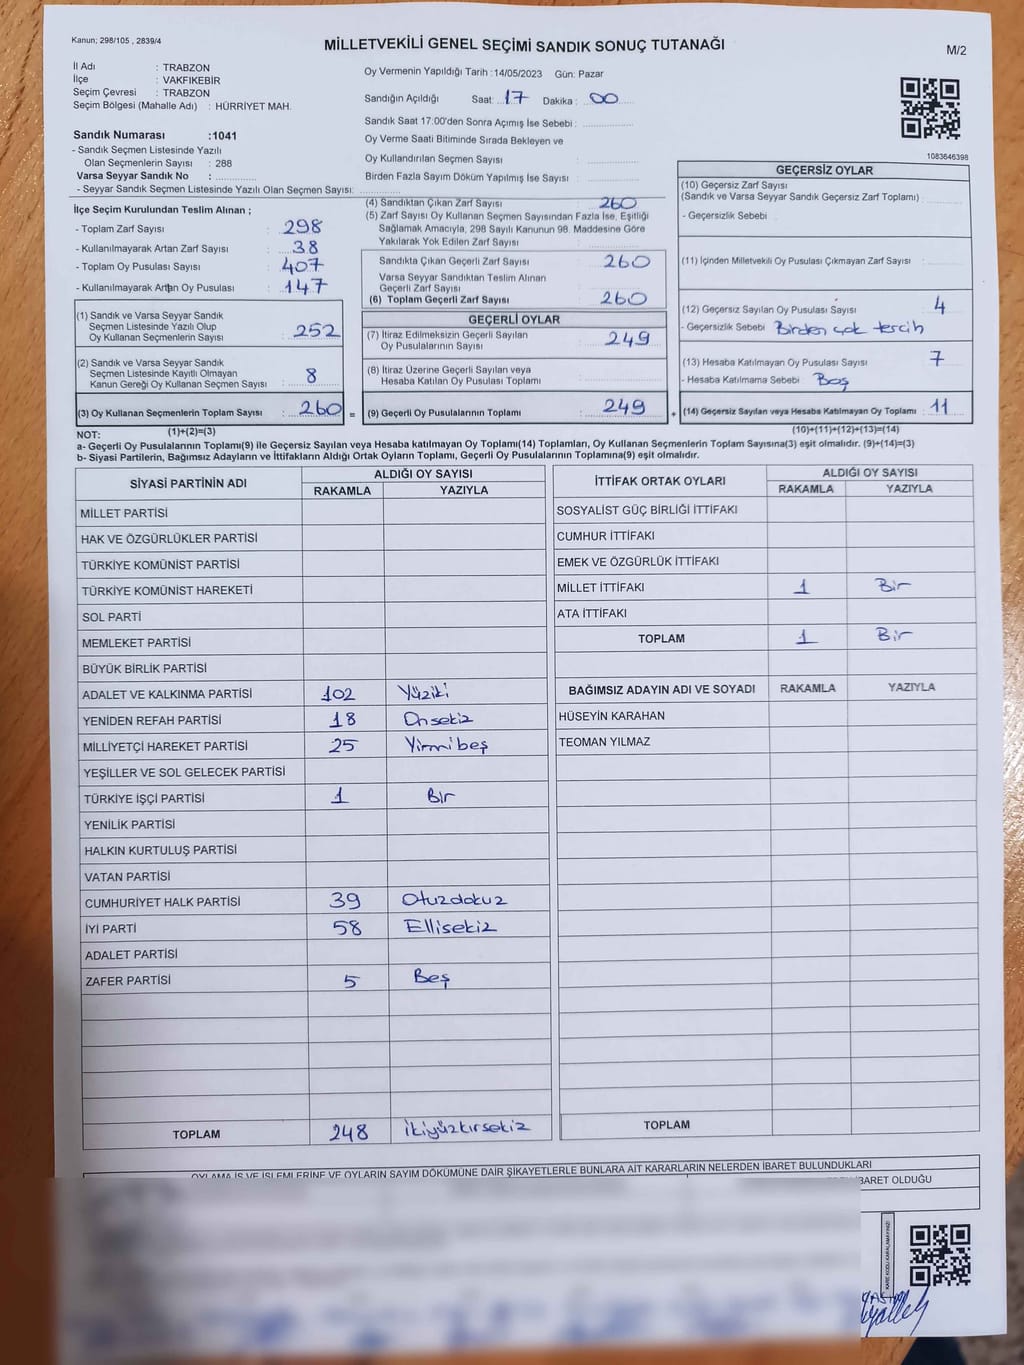 Kanun; 298/105 , 2839/4
MİLLETVEKİLİ GENEL SEÇİMİ SANDIK SONUÇ TUTANAĞI
M/2
İl Adı : TRABZON
İlçe : VAKFIKEBİR
Seçim Çevresi : TRABZON
Seçim Bölgesi (Mahalle Adı) : HÜRRİYET MAH.
Sandık Numarası :1041
- Sandık Seçmen Listesinde Yazılı
Olan Seçmenlerin Sayısı : 288
Varsa Seyyar Sandık No :
- Seyyar Sandık Seçmen Listesinde Yazılı Olan Seçmen Sayısı:
Oy Vermenin Yapıldığı Tarih :14/05/2023 Gün: Pazar
Sandığın Açıldığı Saat: 17 Dakika : 00
Sandık Saat 17:00'den Sonra Açımış İse Sebebi :
Oy Verme Saati Bitiminde Sırada Bekleyen ve
Oy Kullandırılan Seçmen Sayısı :
Birden Fazla Sayım Döküm Yapılmış İse Sayısı :
1083646398
İlçe Seçim Kurulundan Teslim Alınan ;
- Toplam Zarf Sayısı : 298
- Kullanılmayarak Artan Zarf Sayısı : 38
- Toplam Oy Pusulası Sayısı : 407
- Kullanılmayarak Artan Oy Pusulası : 147
(1) Sandık ve Varsa Seyyar Sandık
Seçmen Listesinde Yazılı Olup
Oy Kullanan Seçmenlerin Sayısı : 252
(2) Sandık ve Varsa Seyyar Sandık
Seçmen Listesinde Kayıtlı Olmayan
Kanun Gereği Oy Kullanan Seçmen Sayısı : 8
(3) Oy Kullanan Seçmenlerin Toplam Sayısı : 260 =
(1)+(2)=(3)
(4) Sandıktan Çıkan Zarf Sayısı : 260
(5) Zarf Sayısı Oy Kullanan Seçmen Sayısından Fazla İse, Eşitliği
Sağlamak Amacıyla, 298 Sayılı Kanunun 98. Maddesine Göre
Yakılarak Yok Edilen Zarf Sayısı :
Sandıkta Çıkan Geçerli Zarf Sayısı : 260
Varsa Seyyar Sandıktan Teslim Alınan
Geçerli Zarf Sayısı :
(6) Toplam Geçerli Zarf Sayısı : 260
GEÇERLİ OYLAR
(7) İtiraz Edilmeksizin Geçerli Sayılan
Oy Pusulalarının Sayısı : 249
(8) İtiraz Üzerine Geçerli Sayılan veya
Hesaba Katılan Oy Pusulası Toplamı :
(9) Geçerli Oy Pusulalarının Toplamı : 249 +
GEÇERSİZ OYLAR
(10) Geçersiz Zarf Sayısı
(Sandık ve Varsa Seyyar Sandık Geçersiz Zarf Toplamı) :
- Geçersizlik Sebebi
(11) İçinden Milletvekili Oy Pusulası Çıkmayan Zarf Sayısı :
(12) Geçersiz Sayılan Oy Pusulası Sayısı : 4
- Geçersizlik Sebebi Birden çok tercih
(13) Hesaba Katılmayan Oy Pusulası Sayısı : 7
- Hesaba Katılmama Sebebi : Boş
(14) Geçersiz Sayılan veya Hesaba Katılmayan Oy Toplamı : 11
(10)+(11)+(12)+(13)=(14)
NOT:
a- Geçerli Oy Pusulalarının Toplamı(9) ile Geçersiz Sayılan veya Hesaba katılmayan Oy Toplamı(14) Toplamları, Oy Kullanan Seçmenlerin Toplam Sayısına(3) eşit olmalıdır. (9)+(14)=(3)
b- Siyasi Partilerin, Bağımsız Adayların ve İttifakların Aldığı Ortak Oyların Toplamı, Geçerli Oy Pusulalarının Toplamına(9) eşit olmalıdır.
SİYASİ PARTİNİN ADI ALDIĞI OY SAYISI
RAKAMLA YAZIYLA
MİLLET PARTİSİ
HAK VE ÖZGÜRLÜKLER PARTİSİ
TÜRKİYE KOMÜNİST PARTİSİ
TÜRKİYE KOMÜNİST HAREKETİ
SOL PARTİ
MEMLEKET PARTİSİ
BÜYÜK BİRLİK PARTİSİ
ADALET VE KALKINMA PARTİSİ 102 Yüziki
YENİDEN REFAH PARTİSİ 18 Onsekiz
MİLLİYETÇİ HAREKET PARTİSİ 25 Yirmibeş
YEŞİLLER VE SOL GELECEK PARTİSİ
TÜRKİYE İŞÇİ PARTİSİ 1 Bir
YENİLİK PARTİSİ
HALKIN KURTULUŞ PARTİSİ
VATAN PARTİSİ
CUMHURİYET HALK PARTİSİ 39 Otuzdokuz
İYİ PARTİ 58 Ellisekiz
ADALET PARTİSİ
ZAFER PARTİSİ 5 Beş
TOPLAM 248 ikiyüzkırsekiz
İTTİFAK ORTAK OYLARI ALDIĞI OY SAYISI
RAKAMLA YAZIYLA
SOSYALİST GÜÇ BİRLİĞİ İTTİFAKI
CUMHUR İTTİFAKI
EMEK VE ÖZGÜRLÜK İTTİFAKI
MİLLET İTTİFAKI 1 Bir
ATA İTTİFAKI
TOPLAM 1 Bir
BAĞIMSIZ ADAYIN ADI VE SOYADI RAKAMLA YAZIYLA
HÜSEYİN KARAHAN
TEOMAN YILMAZ
TOPLAM
OYLAMA İŞ VE İŞLEMLERİNE VE OYLARIN SAYIM DÖKÜMÜNE DAİR ŞİKAYETLERLE BUNLARA AİT KARARLARIN NELERDEN İBARET BULUNDUKLARI
İBARET OLDUĞU
KARE KODU KARALAMAYINIZ!